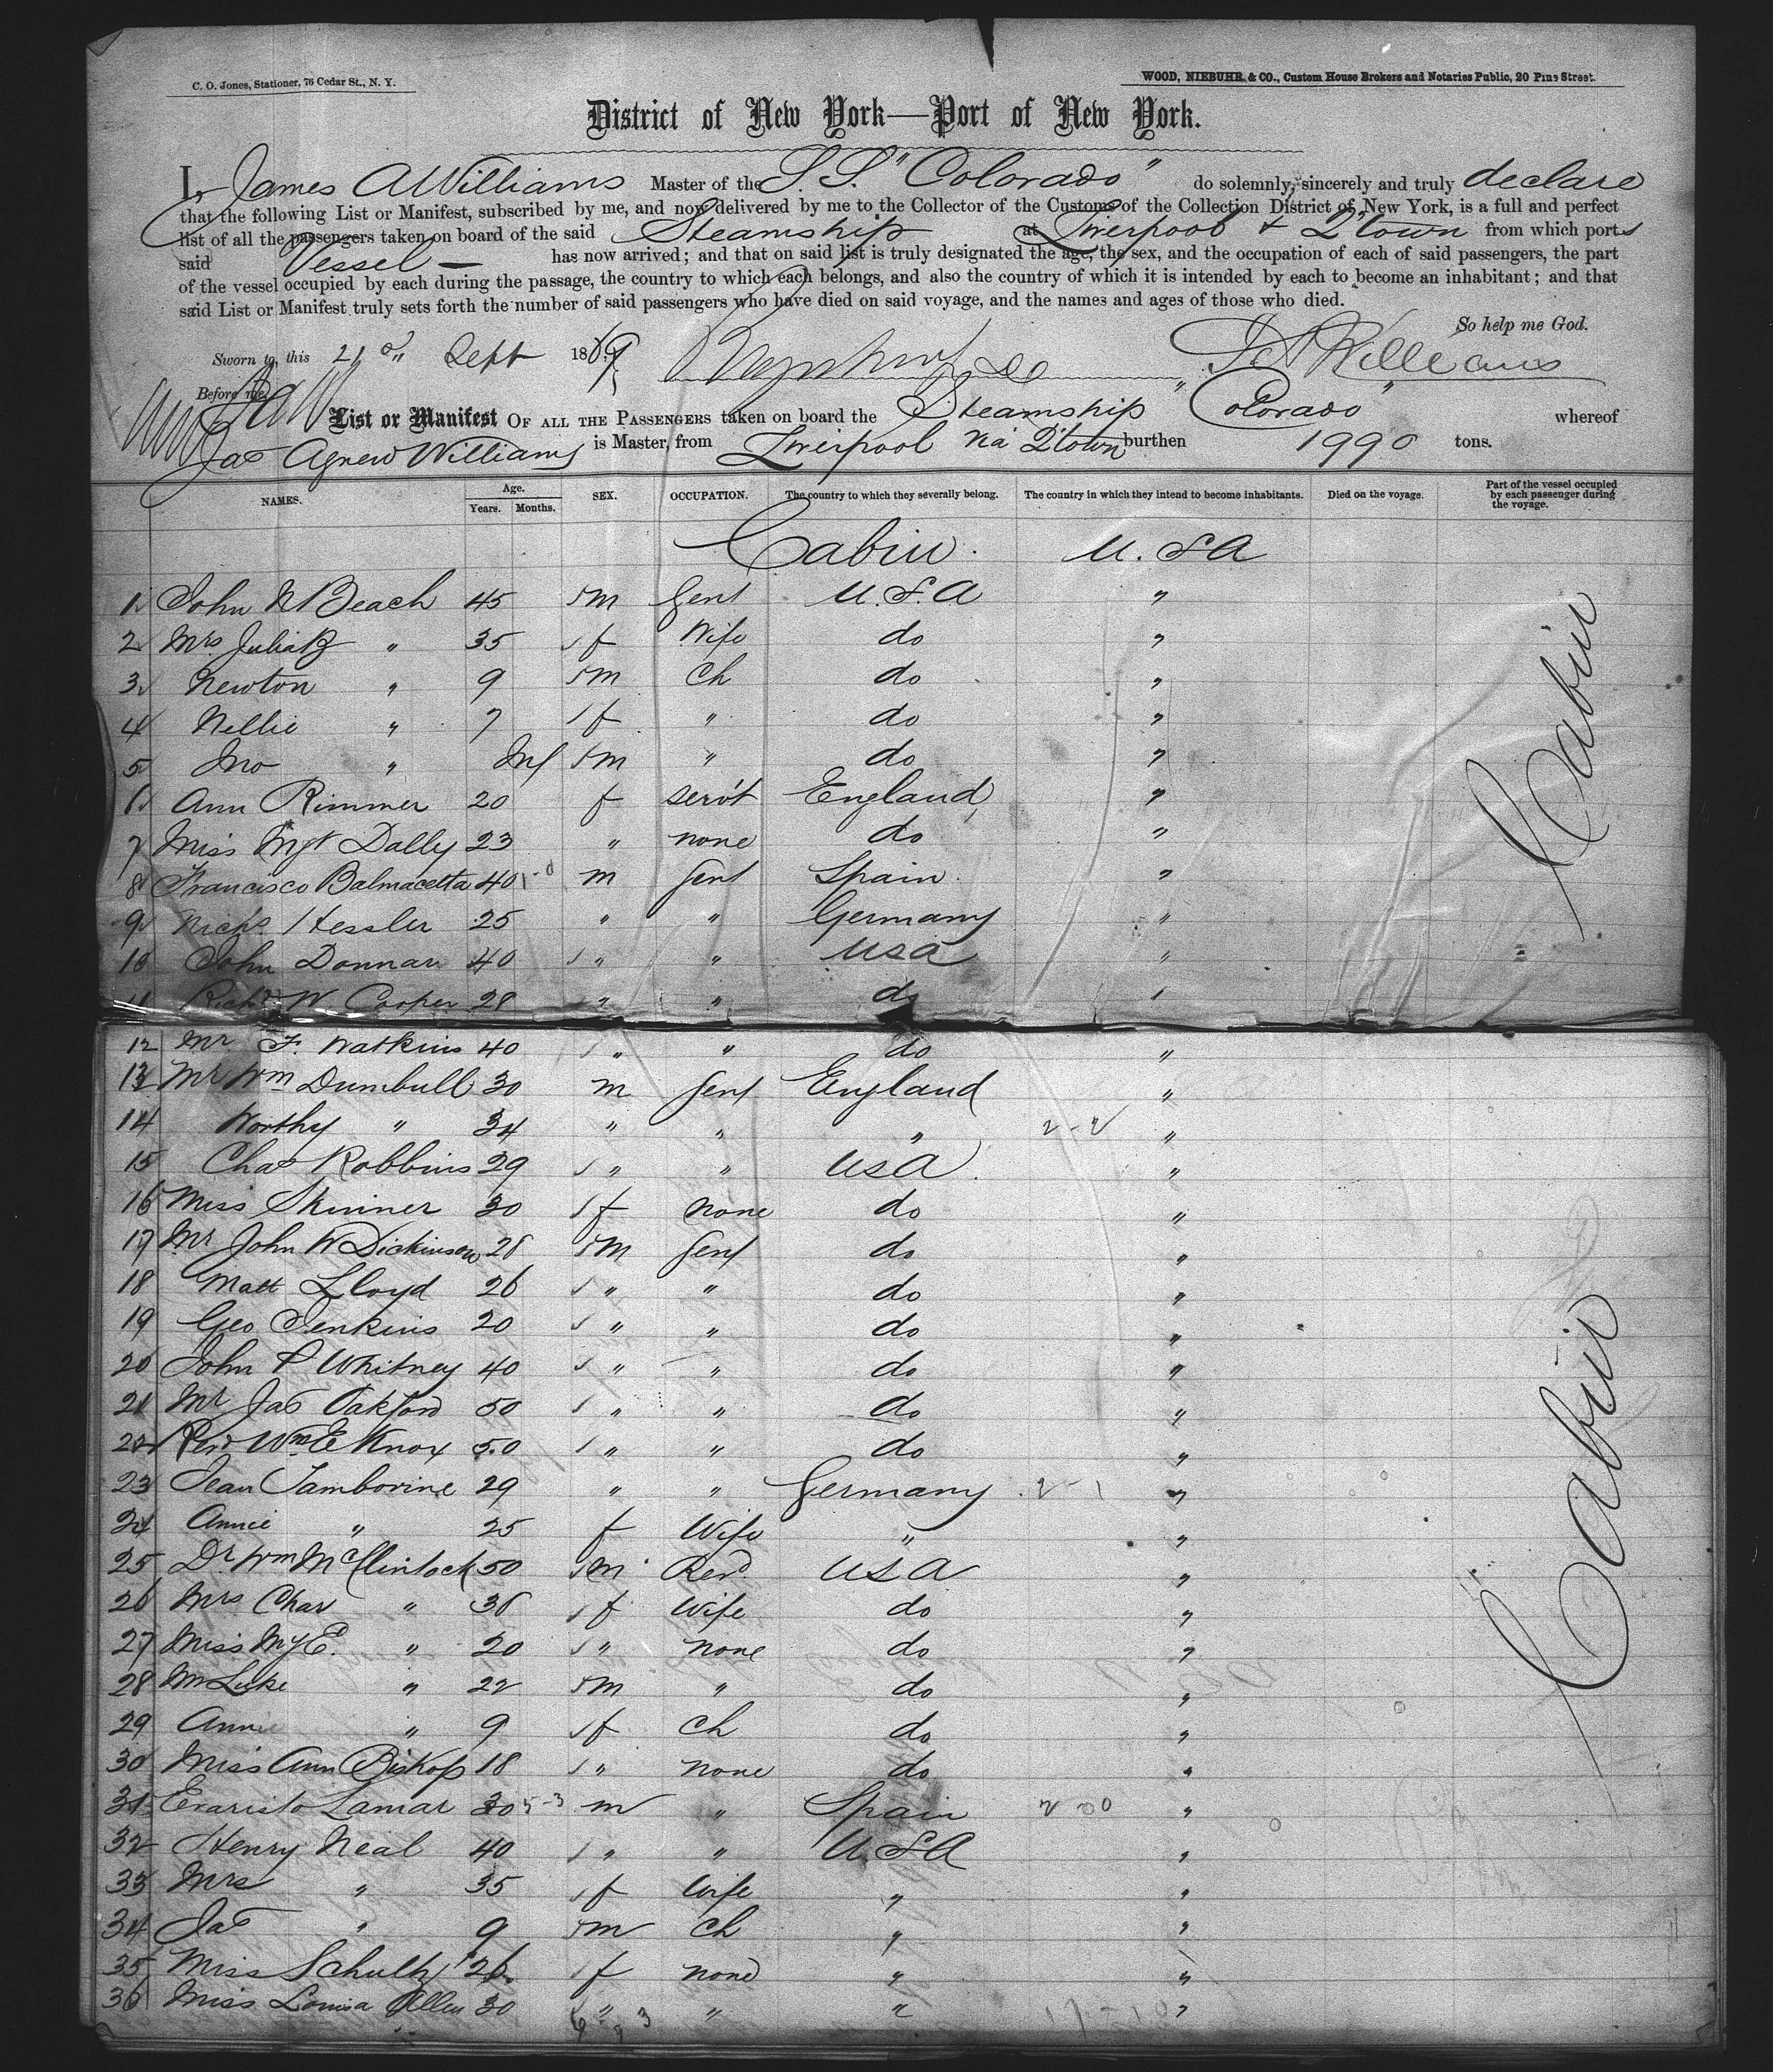 C. O. Jones, Stationer, 76 Cedar St., N. Y.
WOOD, NIEBUHR, & CO., Custom House Brokers and Notaries Public, 20 Pine Street.
District of New York—Port of New York.
I, James A Williams Master of the S. S. "Colorado" do solemnly, sincerely and truly declare
that the following List or Manifest, subscribed by me, and now delivered by me to the Collector of the Customs of the Collection District of New York, is a full and perfect
list of all the passengers taken on board of the said Steamship at Liverpool & Qtown from which ports
said Vessel — has now arrived; and that on said list is truly designated the age, the sex, and the occupation of each of said passengers, the part
of the vessel occupied by each during the passage, the country to which each belongs, and also the country of which it is intended by each to become an inhabitant; and that
said List or Manifest truly sets forth the number of said passengers who have died on said voyage, and the names and ages of those who died.
So help me God.
Sworn to, this 21 Sept 1869 Jas A Williams
Before me,
List or Manifest OF ALL THE PASSENGERS taken on board the Steamship "Colorado" whereof
Jas Agnew Williams is Master, from Liverpool via Qtown burthen 1990 tons.
NAMES. Age. Years. Months. SEX. OCCUPATION. The country to which they severally belong. The country in which they intend to become inhabitants. Died on the voyage. Part of the vessel occupied by each passenger during the voyage.
Cabin. U. S A
1 John N Beach 45 m Gent U. S. A "
2 Mrs Julia B " 35 f Wife do "
3 Newton " 9 m Ch do "
4 Nellie " 7 f " do "
5 Jno " Inf m " do "
6 Ann Rimmer 20 f serv't England "
7 Miss Mgt Dally 23 " none do "
8 Francisco Balmacetta 40 m Gent Spain "
9 Richd Hessler 25 " " Germany "
10 John Donnan 40 " " USA "
11 Richd W Cooper 28 " " do "
12 Mr F. Watkins 40 " " do "
13 Mr Wm Dumbull 30 m Gent England "
14 Worthy " 34 " " " "
15 Chas Robbins 29 " " USA "
16 Miss Skinner 30 f none do "
17 Mr John W Dickinson 28 m Gent do "
18 Matt Lloyd 26 " " do "
19 Geo Jenkins 20 " " do "
20 John P Whitney 40 " " do "
21 Mr Jas Oakford 50 " " do "
22 Revd Wm E Knox 50 " " do "
23 Jean Tamborine 29 " " Germany "
24 Annie " 25 f Wife " "
25 Dr Wm McClintock 50 m Revd USA "
26 Mrs Char " 36 f Wife do "
27 Miss My E. " 20 " none do "
28 Mr Luke " 22 m " do "
29 Annie " 9 f ch do "
30 Miss Ann Bishop 18 " none do "
31 Evaristo Lamar 30 m " Spain "
32 Henry Neal 40 " " U. S A "
33 Mrs " 35 f Wife " "
34 Jas " 9 m ch " "
35 Miss Schultz 26 f none " "
36 Miss Louisa Allen 30 " " " "
Cabin
Cabin